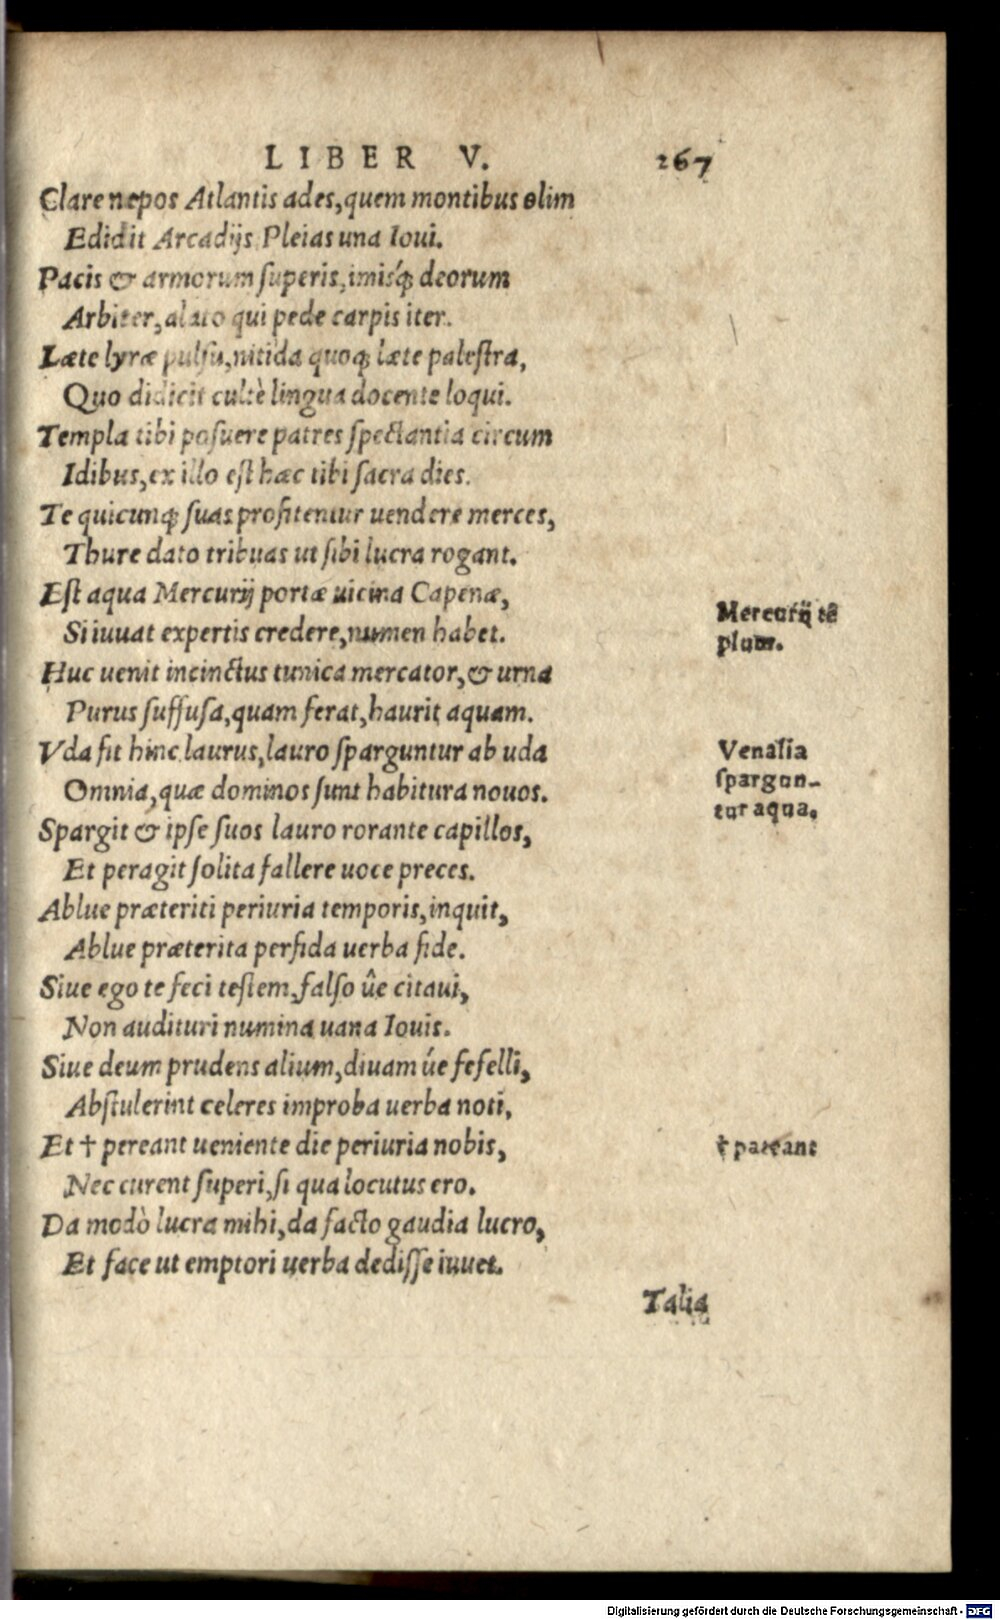 LIBER V. 267
Clare nepos Atlantis ades, quem montibus olim
Edidit Arcadijs Pleias una Ioui.
Pacis & armorum superis, imisq́; deorum
Arbiter, alato qui pede carpis iter.
Læte lyræ pulsu, nitida quoq; læte palestra,
Quo didicit cultè lingua docente loqui.
Templa tibi posuere patres spectantia circum
Idibus, ex illo est hæc tibi sacra dies.
Te quicunq; suas profitentur uendere merces,
Thure dato tribuas ut sibi lucra rogant.
Est aqua Mercurij portæ uicina Capenæ,
Si iuuat expertis credere, numen habet.
Mercurij tẽ
plum.
Huc uenit incinctus tunica mercator, & urna
Purus suffusa, quam ferat, haurit aquam.
Vda fit hinc laurus, lauro sparguntur ab uda
Omnia, quæ dominos sunt habitura nouos.
Venalia
spargun-
tur aqua.
Spargit & ipse suos lauro rorante capillos,
Et peragit solita fallere uoce preces.
Ablue præteriti periuria temporis, inquit,
Ablue præterita perfida uerba fide.
Siue ego te feci testem, falso ûe citaui,
Non audituri numina uana Iouis.
Siue deum prudens alium, diuam úe fefelli,
Abstulerint celeres improba uerba noti,
Et † pereant ueniente die periuria nobis,
† pateant
Nec curent superi, si qua locutus ero.
Da modò lucra mihi, da facto gaudia lucro,
Et face ut emptori uerba dedisse iuuet.
Talia
Digitalisierung gefördert durch die Deutsche Forschungsgemeinschaft - DFG